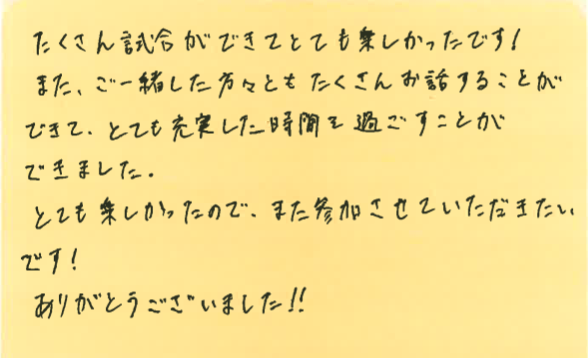 たくさん試合ができてとても楽しかったです!
また、ご一緒した方々ともたくさんお話することが
できて、とても充実した時間を過ごすことが
できました。
とても楽しかったので、また参加させていただきたい
です!
ありがとうございました!!